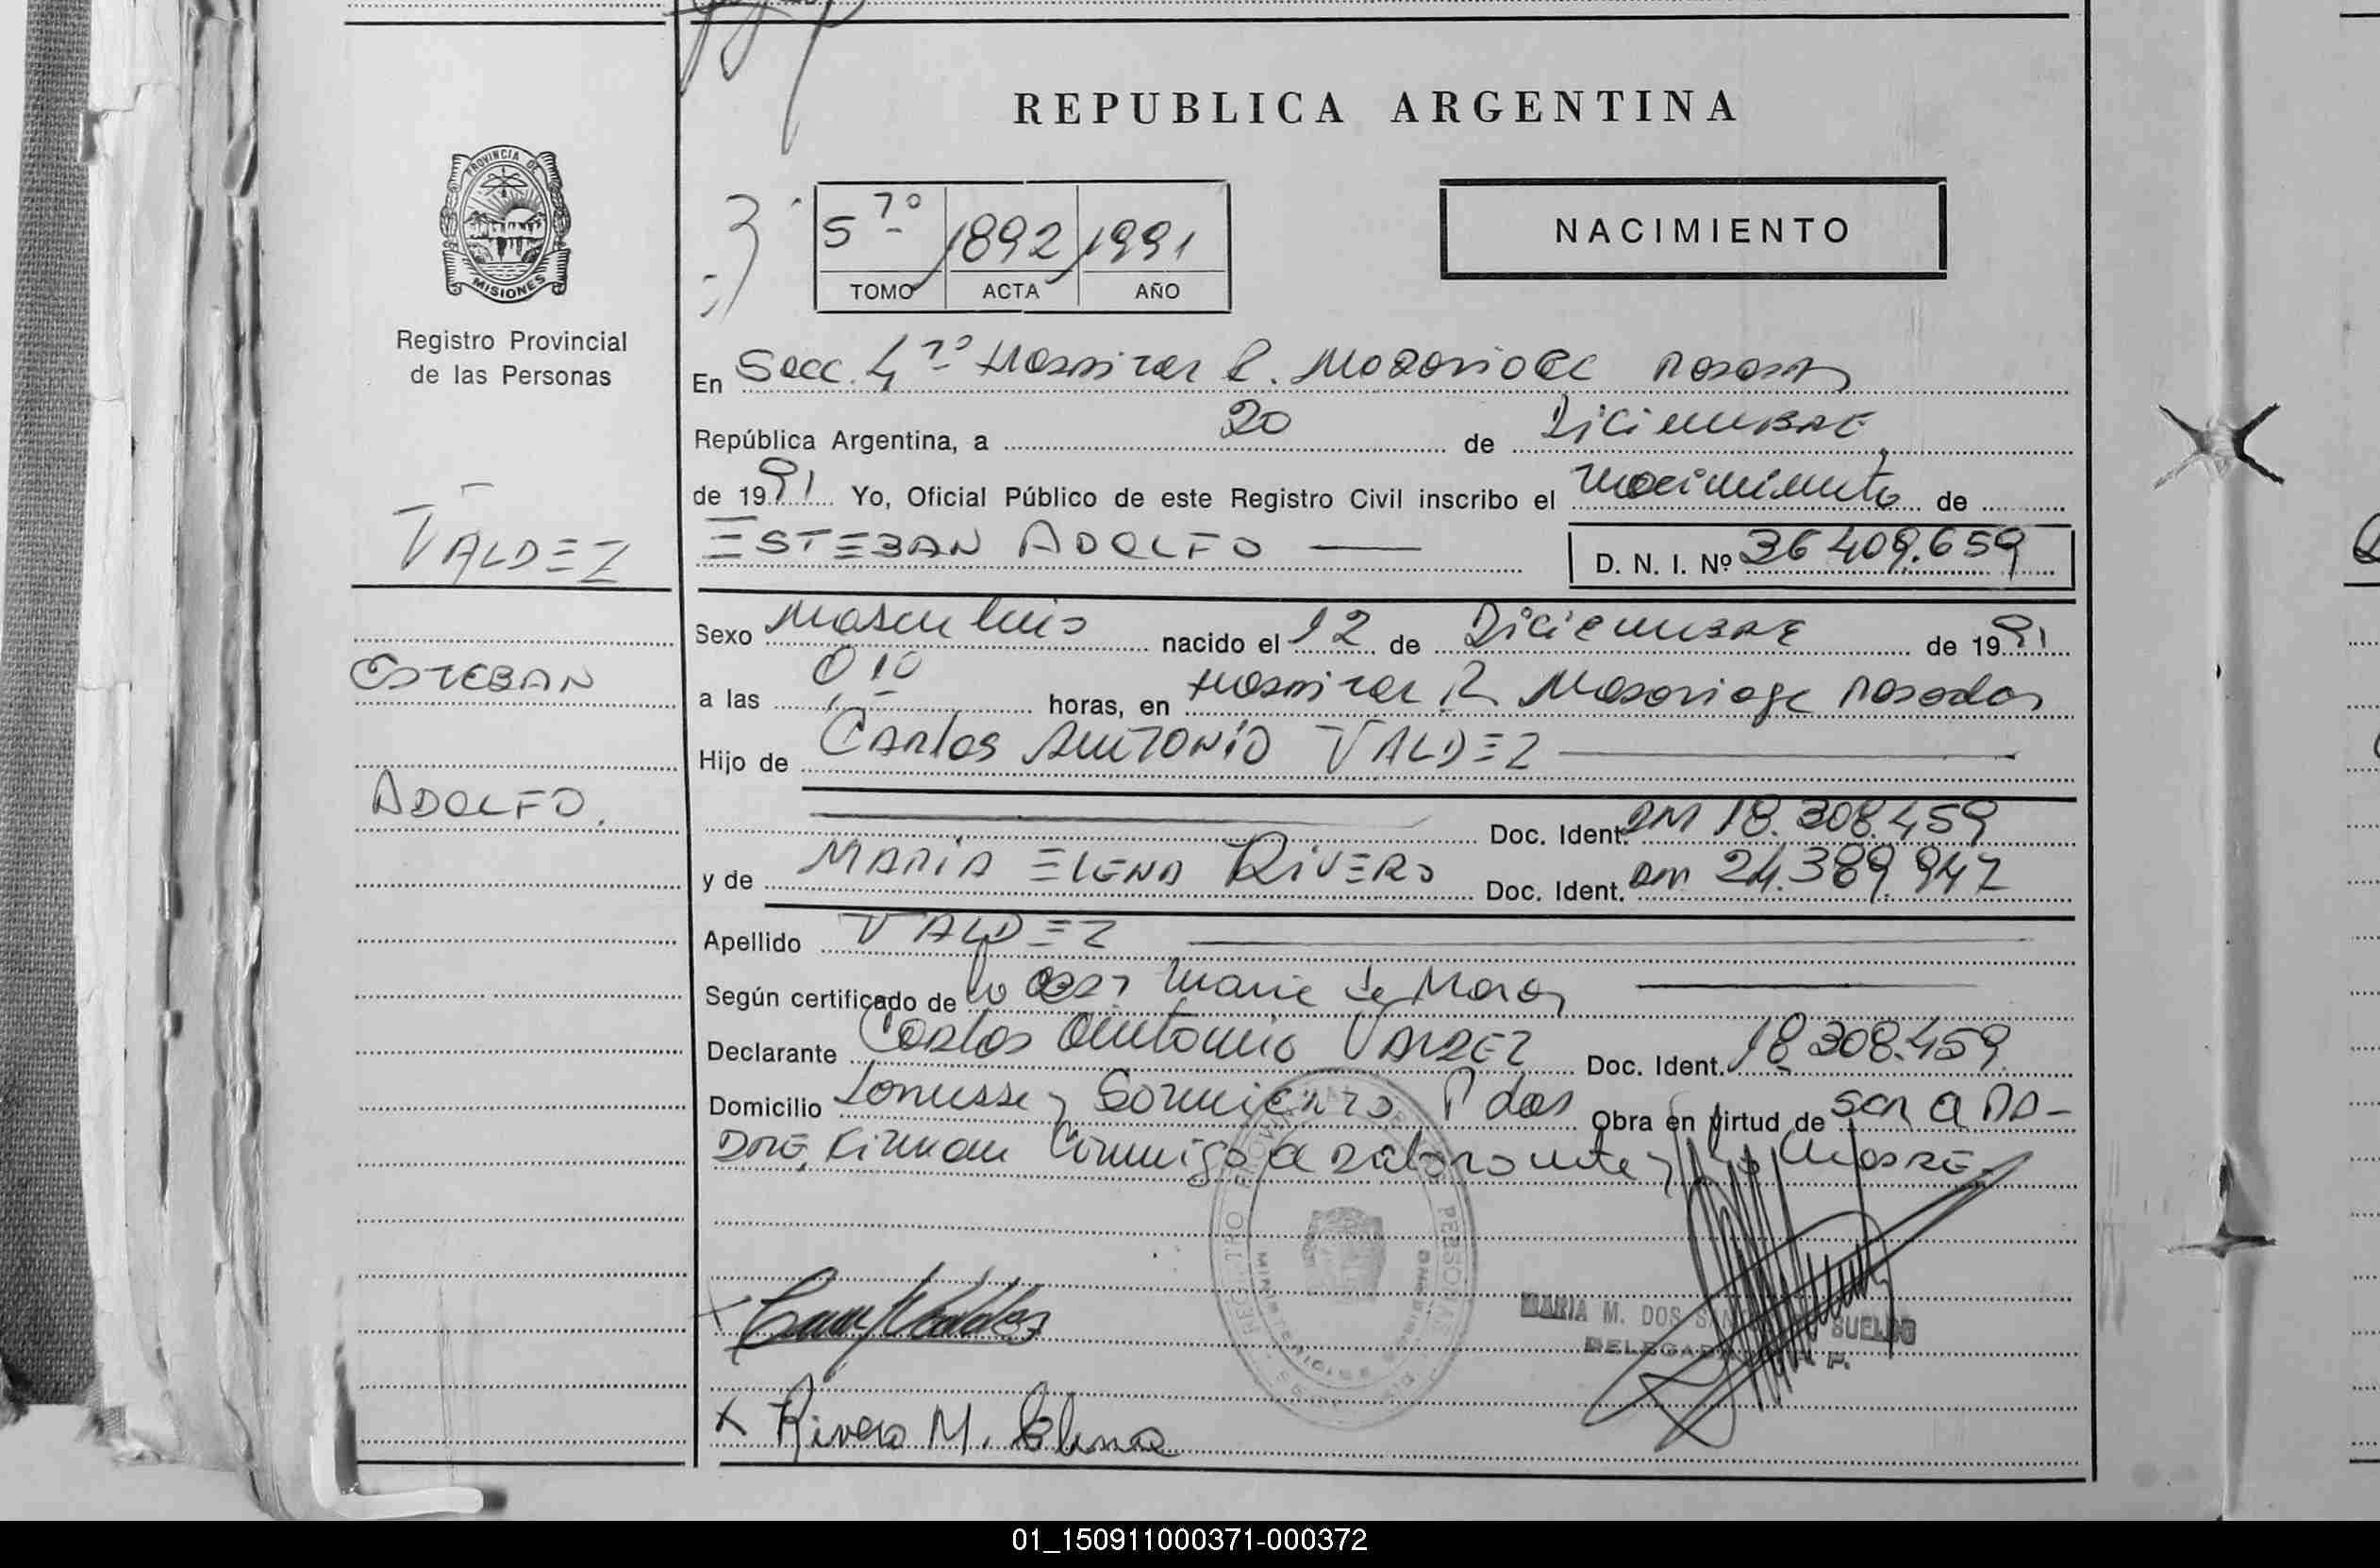 REPUBLICA ARGENTINA
PROVINCIA DE
MISIONES
Registro Provincial
de las Personas
5to 1892 1991
TOMO ACTA AÑO
NACIMIENTO
En Secc. 4ta Hospital R. Madariaga Posadas
República Argentina, a 20 de Diciembre
de 1991 Yo, Oficial Público de este Registro Civil inscribo el nacimiento de
VALDEZ
ESTEBAN ADOLFO
D. N. I. Nº 36409.659
Sexo Masculino nacido el 12 de Diciembre de 1991
ESTEBAN
a las 0,10 horas, en Hospital R. Madariaga Posadas
Hijo de Carlos ANTONIO VALDEZ
ADOLFO.
Doc. Ident. DM 18.308.459
y de MARIA ELENA RIVERO Doc. Ident. DM 24.389.947
Apellido VALDEZ
Según certificado de la Marie de Mora
Declarante Carlos Antonio VALDEZ Doc. Ident. 18.308.459
Domicilio Lanusse y Sarmiento Pdas Obra en virtud de ser el PA-
DRE, Firman Conmigo el declarante y la MADRE.
MARIA M. DOS SUELDO
DELEGADA R. P.
X Rivero M. Elena
01_150911000371-000372